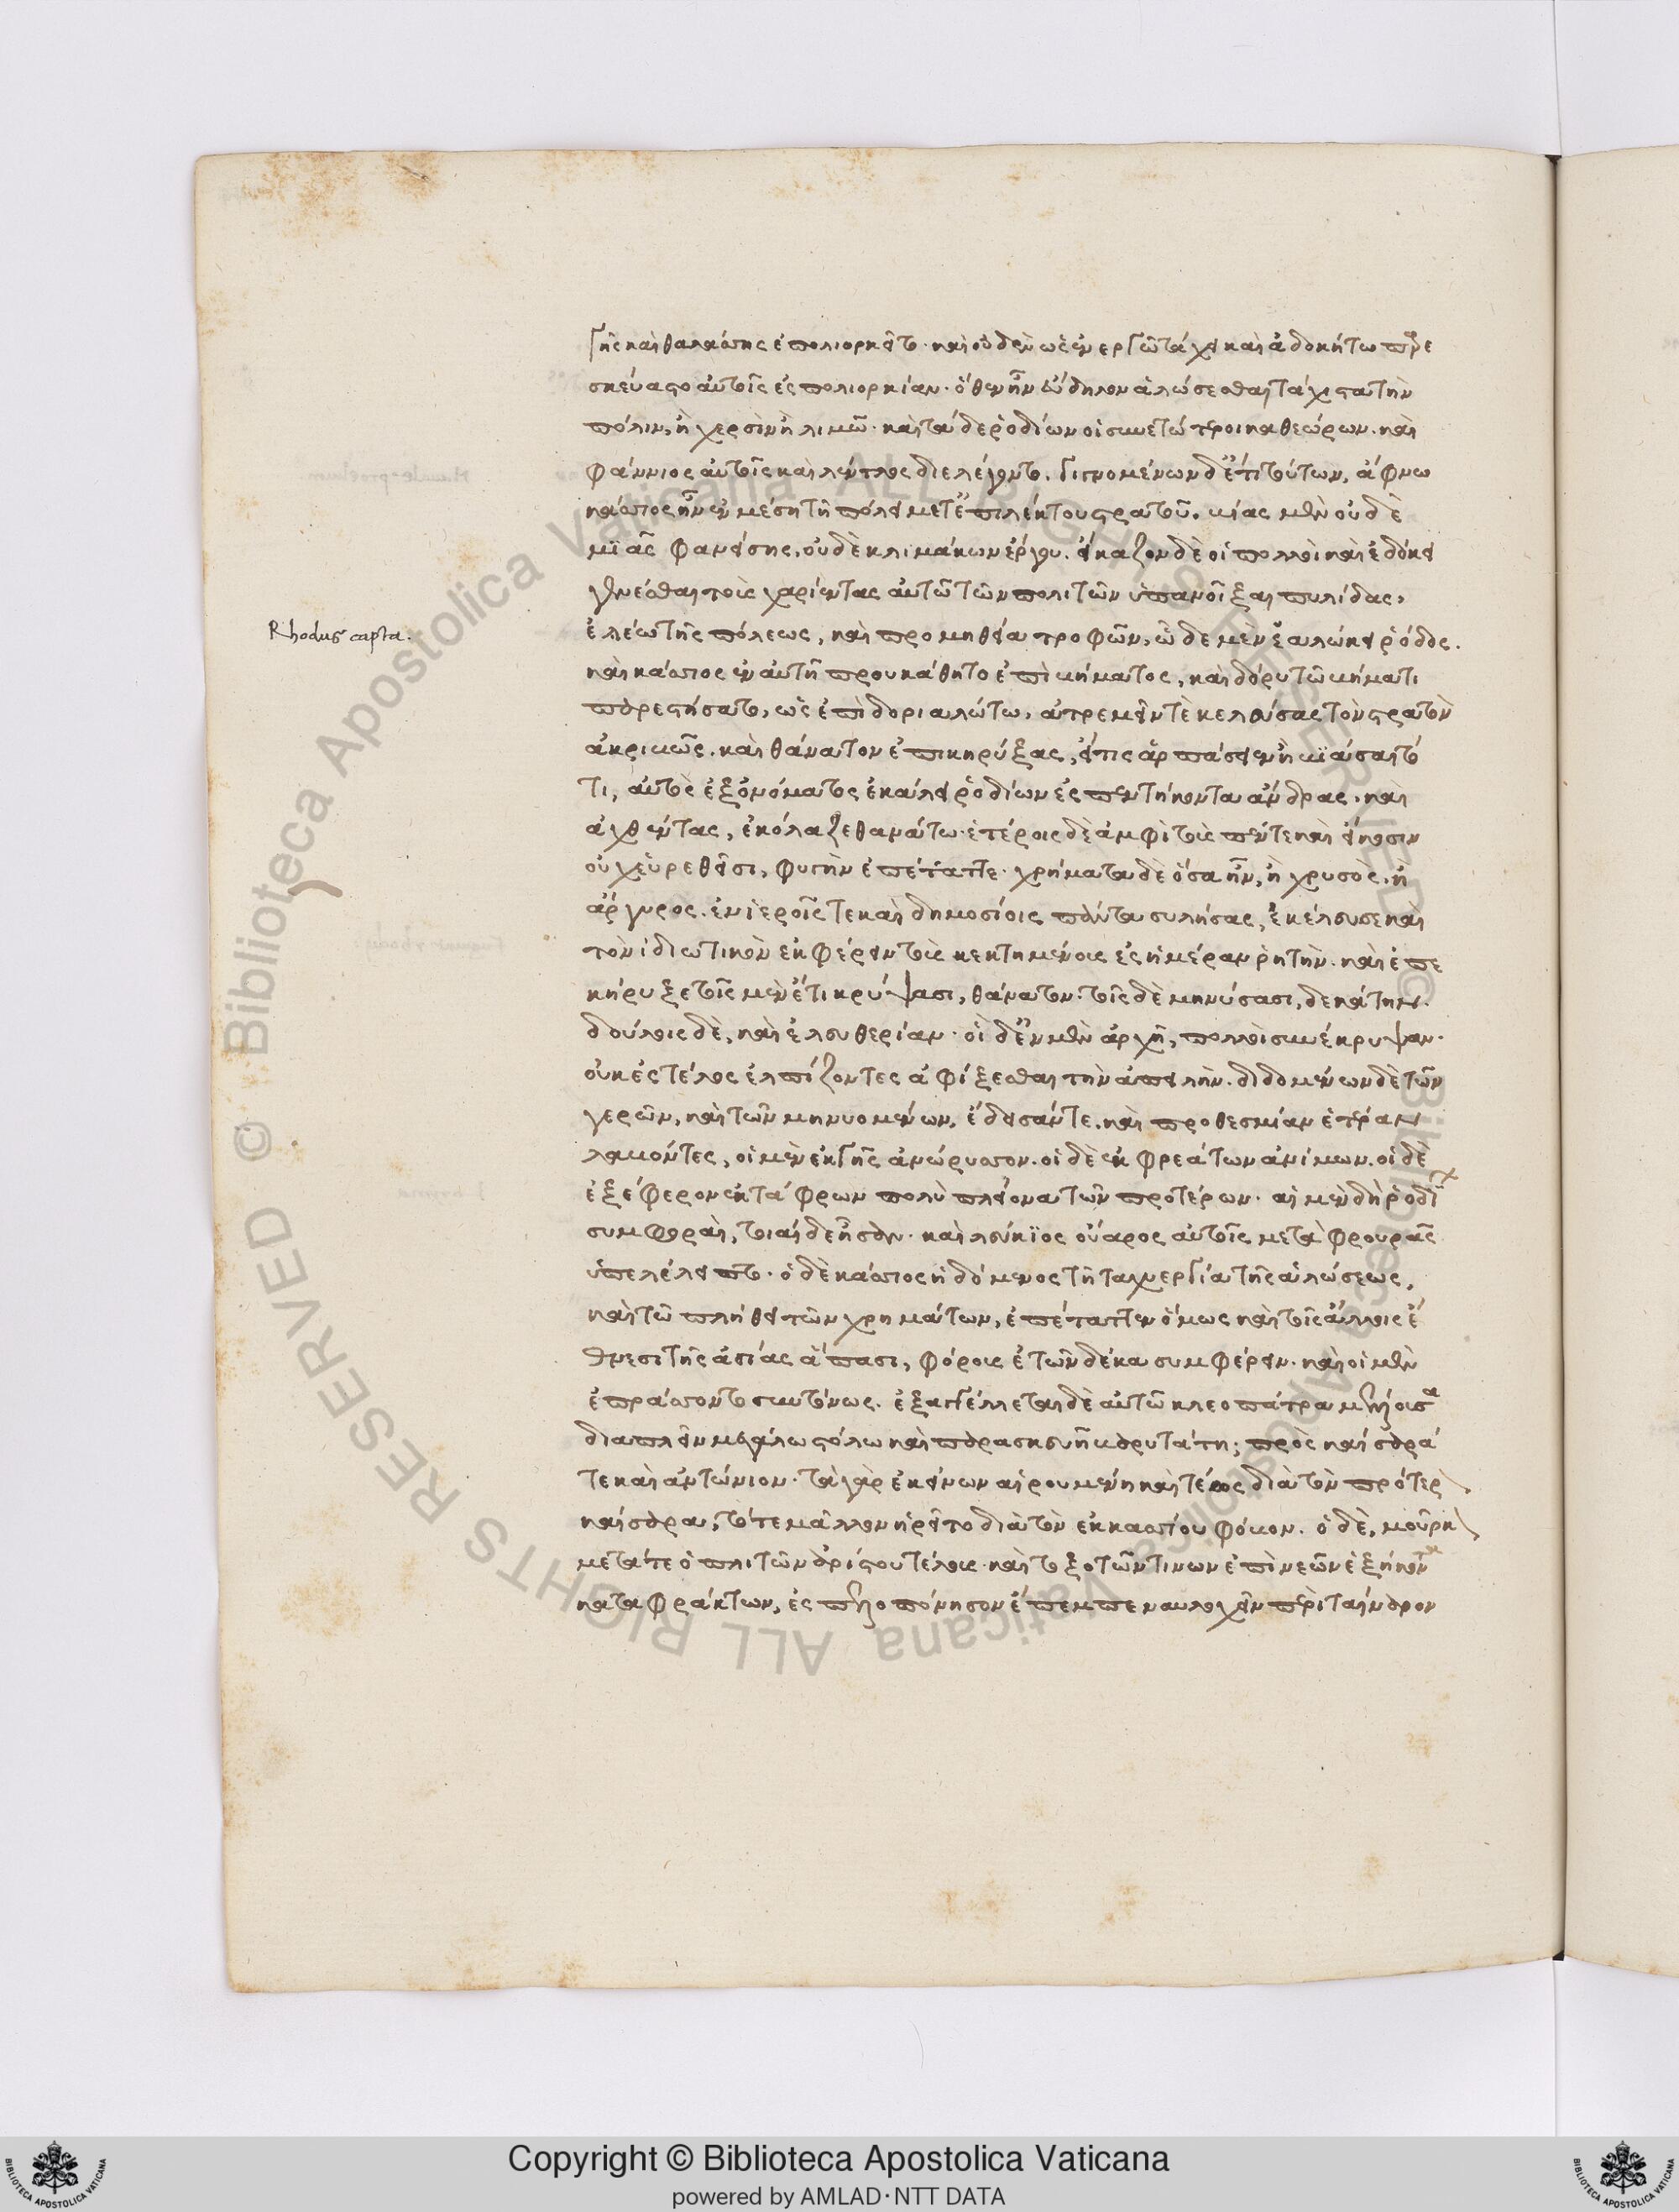 γῆς καὶ θαλάσσης ἐπολιορκεῖτο. καὶ οὐδὲν ὡς ἐν ἔργῳ ταχεῖ καὶ ἀδοκήτῳ παρε
σκεύαστο αὐτοῖς ἐς πολιορκίαν. ὅθεν ἦν εὔδηλον ἁλώσεσθαι τάχιστα τὴν
πόλιν, ἢ χερσὶν ἢ λιμῷ. καὶ τάδε ῥοδίων οἱ συνετώτεροι καθεώρων. καὶ
φάννιος αὐτοῖς καὶ λέντλος διελέγοντο. γιγνομένων δ' ἔτι τούτων, ἄφνω
κάσσιος ἦν ἐν μέσῃ τῇ πόλει μετ' ἐπιλέκτου στρατοῦ. βίας μὲν οὐδε
μϊᾶς φανείσης, οὐδὲ κλιμάκων ἔργου. εἴκαζον δὲ οἱ πολλοὶ καὶ ἐδόκει
γενέσθαι τοὺς χαρίεντας αὐτῷ τῶν πολιτῶν ὑπανοῖξαι πυλίδας,
ἐλέῳ τῆς πόλεως, καὶ προμηθείᾳ τροφῶν. ὧδε μὲν ἑαλώκει ῥόδος.
Rhodus capta.
καὶ κάσσιος ἐν αὐτῇ προυκάθητο ἐπὶ βήματος, καὶ δόρυ τῷ βήματι
παρεστήσατο, ὡς ἐπὶ δοριαλώτῳ. ἀτρεμεῖν τὲ κελεύσας τὸν στρατὸν
ἀκριβῶς. καὶ θάνατον ἐπικηρύξας, εἴ τις ἁρπάσειεν ἢ βϊάσαιτό
τι, αὐτὸς ἐξ ὀνόματος ἐκάλει ῥοδίων ἐς πεντήκοντα ἄνδρας. καὶ
ἀχθέντας, ἐκόλαζε θανάτῳ. ἑτέροις δὲ ἀμφὶ τοὺς πέντε καὶ εἴκοσιν
οὐχ εὑρεθεῖσι, φυγὴν ἐπέταττε. χρήματα δὲ ὅσα ἦν, ἢ χρυσὸς, ἢ
ἄργυρος. ἐν ἱεροῖς τε καὶ δημοσίοις πάντα συλήσας, ἐκέλευσε καὶ
τὸν ἰδιωτικὸν ἐκφέρειν τοὺς κεκτημένους ἐς ἡμέραν ῥητὴν. καὶ ἐπε
κήρυξε τοῖς μὲν ἔτι κρύψασι, θάνατον. τοῖς δὲ μηνύσασι, δεκάτην.
δούλοις δὲ, καὶ ἐλευθερίαν. οἱ δ' ἐν μὲν ἀρχῇ, πολλοὶ συνέκρυψαν.
οὐκ ἐς τέλος ἐλπίζοντες ἀφίξεσθαι τὴν ἀπειλὴν. διδομένων δὲ τῶν
γερῶν, καὶ τῶν μηνυομένων, ἔδεισάν τε. καὶ προθεσμίαν ἑτέραν
λαβόντες, οἱ μὲν ἐκ γῆς ἀνώρυσσον. οἱ δὲ ἐκ φρεάτων ἀνίμων. οἱ δὲ
ἐξέφερον ἐκ τάφρων πολὺ πλείονα τῶν προτέρων. αἱ μὲν δὴ ῥοδί
συμφοραὶ, τοιαίδε ἦσαν. καὶ λεύκϊος οὔαρος αὐτοῖς μετὰ φρουρᾶς
ὑπελέλειπτο. ὁ δὲ κάσσιος ἡδόμενος τῇ ταχυεργίᾳ τῆς ἁλώσεως,
καὶ τῷ πλήθει τῶν χρημάτων, ἐπέταττεν ὅμως καὶ τοῖς ἄλλοις ἔ
θνεσι τῆς ἀσίας ἅπασι, φόρους ἐτῶν δέκα συμφέρειν. καὶ οἱ μὲν
ἐπράσσοντο συντόνως. ἐξαγγέλλεται δὲ αὐτῷ κλεοπάτρα μέλλουσα
διαπλεῖν μεγάλῳ στόλῳ καὶ παρασκευῇ βαρυτάτῃ, πρὸς καίσαρά
τε καὶ ἀντώνιον. τὰ γὰρ ἐκείνων αἱρουμένη καὶ τέως διὰ τὸν πρότερ
καίσαρα, τότε μᾶλλον ᾑρεῖτο διὰ τὸν ἐκ κασσίου φόβον. ὁ δὲ, μοῦρκ
μετά τε ὁπλιτῶν ἀρίστου τέλους. καὶ τοξοτῶν τινων ἐπὶ νεῶν ἑξήκοντα
καταφράκτων, ἐς πελοπόνησον ἔπεμπε ναυλοχεῖν περὶ ταίναρον